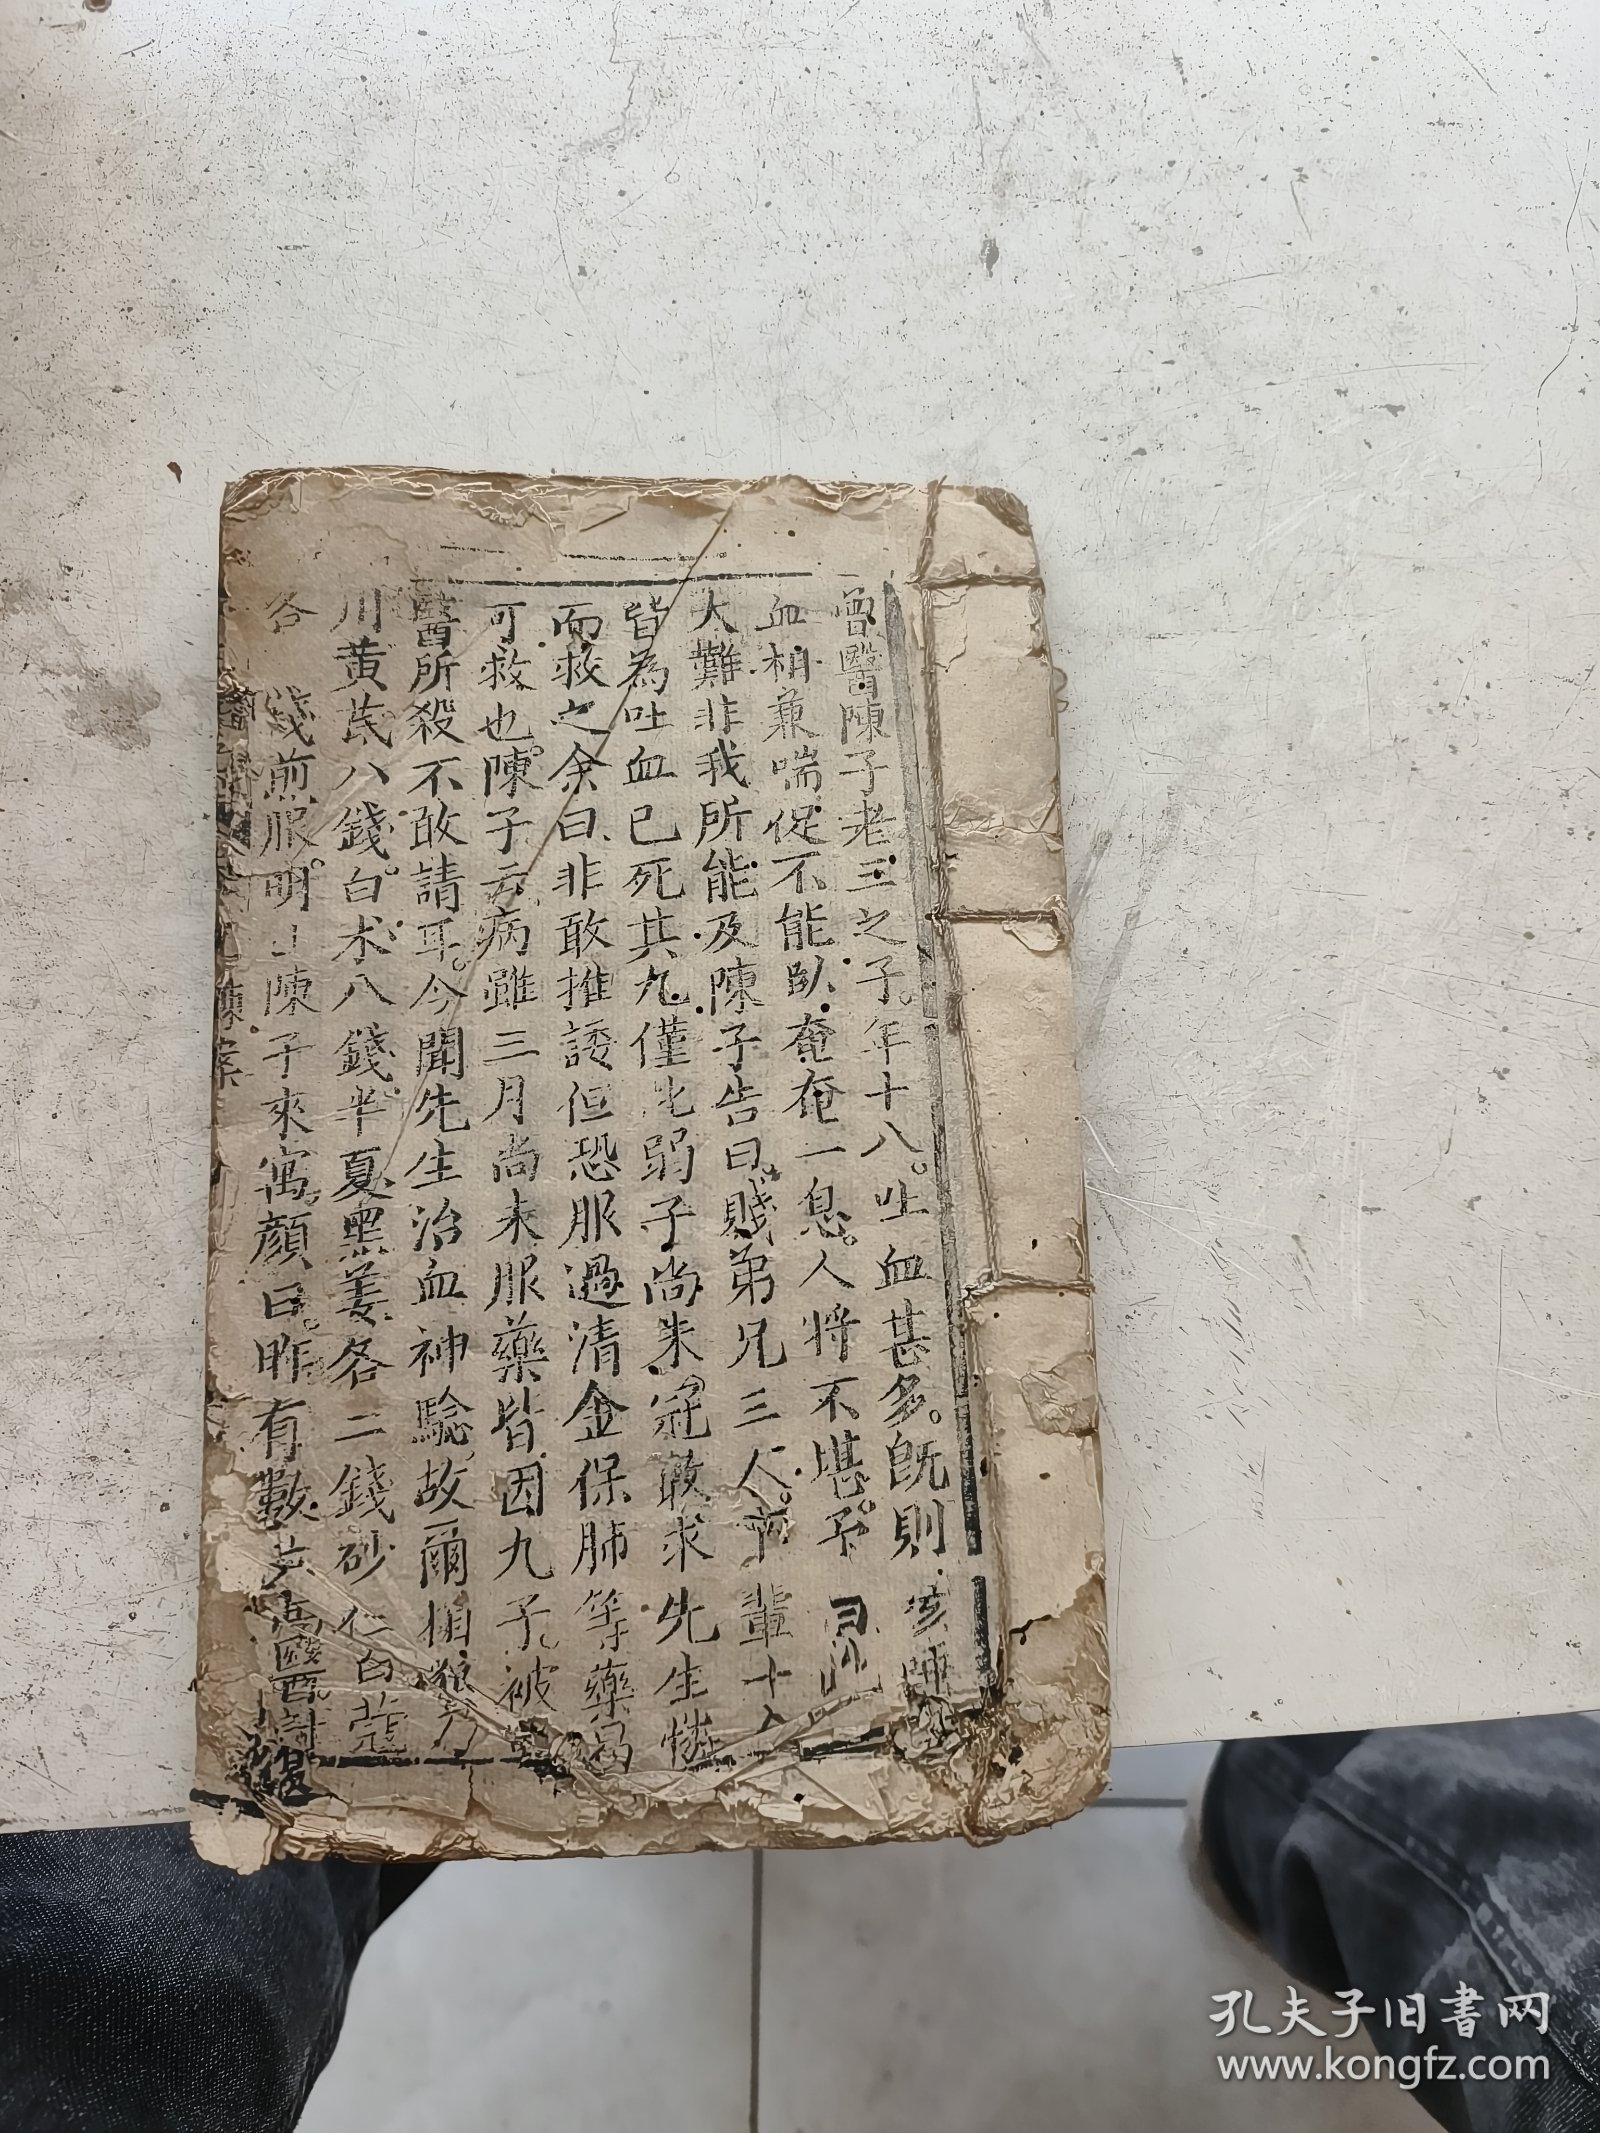 曾醫陳子老三之子。年十八。吐血甚多。既則痰
血相兼喘促不能臥奄奄一息。人將不堪。予曰
大難非我所能及陳子告曰。賤弟兄三人。前輩十人
皆為吐血已死其九僅此弱子尚未冠敢求先生憐
而救之余曰非敢推諉但恐服過清金保肺等藥
可救也陳子云病雖三月尚未服藥皆因九子。被
醫所殺不敢請耳。今聞先生治血神驗故爾相
川黄芪八錢。白朮八錢半夏黑姜各二錢砂仁白蔻
各 錢煎服。明日陳子來寓。顏曰。昨有數 醫
孔夫子旧書网
www.kongfz.com